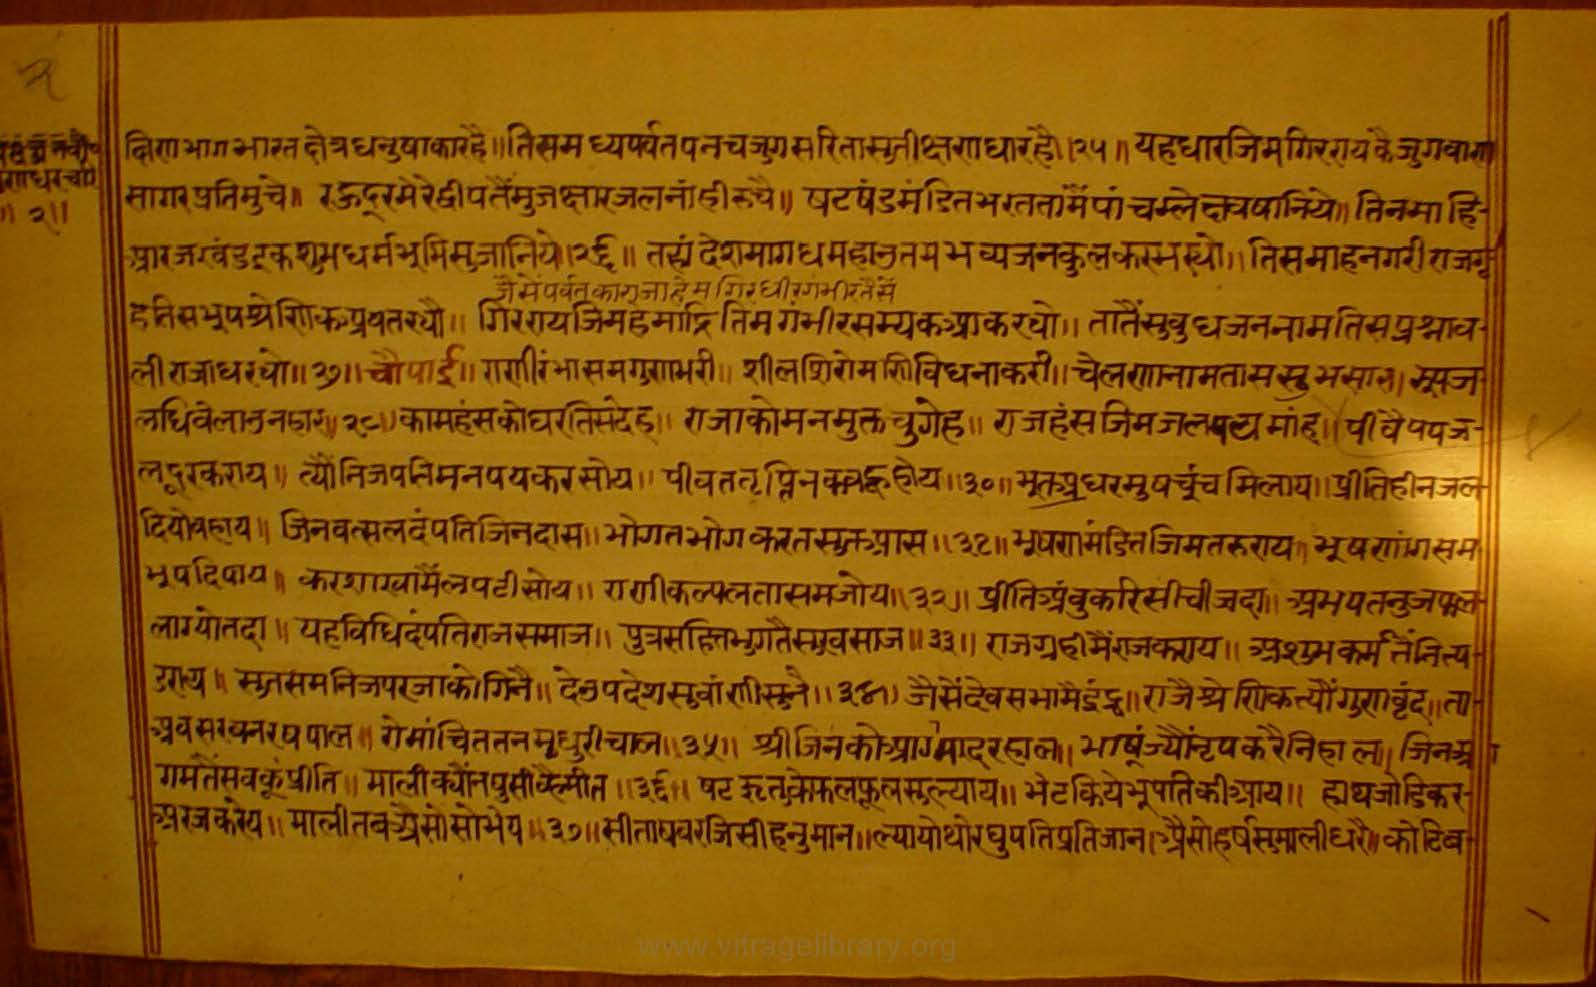 २
॥२॥
क्षिणभागभारतक्षेत्रधनुषाकारहै॥तिसमध्यपर्वतपनचजुगसरितासुतीक्षणधारहै॥२५॥यहधारजिमगिररायकैजुगवाण
सागरप्रतिमुचे॥रऊदूरमेरेद्वीपतैंमुजक्षारजलनांहीरूचै॥षटषंडमंडितभरततामैंपांचम्लेछावषानिये॥तिनमाहि-
आरजखंडइकशुभधर्मभूमिसुजानिये॥२६॥तस्यंदेशमागधमहाउतमभव्यजनकुलकरभस्यो॥तिसमाहनगरीराजगृ
जैसेंपर्वतकाराजाहेमगिरधीरगंभीरतैसें
हतिसभूपश्रेणिकअवतस्यौ॥गिररायजिमहमाद्रितिमगंभीरसम्यकआकस्यो॥तातैंसुबुधजननामतिसप्रश्नाव-
लीराजाधस्यो॥२७॥चौपाई॥राणीरंभासमगुणभरी॥शीलशिरोमणिविधनाकरी॥चेलणानामतासससुभसार॥भूपज-
लधिवेलाउनहार॥२८॥कामहंसकोघरतिसदेह॥राजाकोमनमुक्तचुगेह॥राजहंसजिमजलपयमांह॥पीवैपयज-
लदूरकराय॥त्यौंनिजपतिमनपयकरसोय॥पीवततृप्तिनकबहूहोय॥३०॥भूक्तअधरमुषचूंचमिलाय॥प्रीतिहीनजल
दियोवहाय॥जिनवत्सलदंपतिजिनदास॥भोगतभोगकरतसुक्तआस॥३१॥भूषणमंडितजिमतरुराय॥भूषणांगसम
भूपदिपाय॥करशाखामैंलपटीसोय॥राणीकल्पलतासमजोय॥३२॥प्रीतिअंबुकरिसीचीजदा॥अभयतनुजफल
लाग्योतदा॥यहविधिदंपतिराजसमाज॥पुत्रसहितभुगतैसुखसाज॥३३॥राजग्रहीमैंराजकराय॥अशुभकर्मतैंनित्य-
डराय॥सुतसमनिजपरजाकोगिनै॥देउपदेशसुवांणीसुनै॥३४॥जैसेंदेवसभामैंइंद्र॥राजैश्रेणिकत्यौंगुणवृंद॥ता-
अवसरवनरषपाल॥रोमांचिततनमधुरीचाल॥३५॥श्रीजिनकोआगमादूरहाल॥भाषूंज्यौंनृपकरैनिहाल॥जिनआ
गमतैंसबकूंप्रीति॥मालीक्यौंनषुसीव्हैमीत॥३६॥षटऋतुकेफलफूलसुल्याय॥भेटकियेभूपतिकीआय॥हाथजोडिकर-
अरजकरेय॥मालीतबऔसोसोभेय॥३७॥सीताषबरजिसीहनुमान॥ल्यायोथोरघुपतिप्रतिजान॥औसोहर्षसुमालीधरै॥कोटिब-
www.vitragelibrary.org